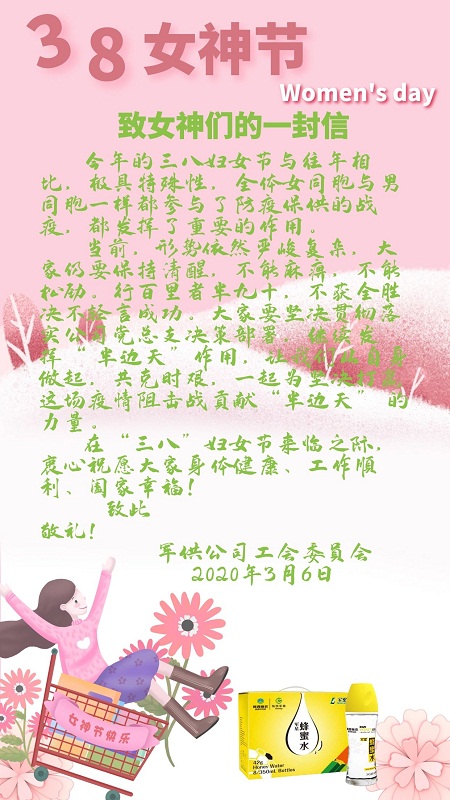 38女神节
Women's day
致女神们的一封信
今年的三八妇女节与往年相
比，极具特殊性，全体女同胞与男
同胞一样都参与了防疫保供的战
疫，都发挥了重要的作用。
当前，形势依然严峻复杂，大
家仍要保持清醒，不能麻痹，不能
松劲。行百里者半九十，不获全胜
决不轻言成功。大家要坚决贯彻落
实公司党总支决策部署，继续发
挥“半边天”作用，让我们从自身
做起，共克时艰，一起为坚决打赢
这场疫情阻击战贡献“半边天”的
力量。
在“三八”妇女节来临之际，
衷心祝愿大家身体健康、工作順
利、阖家幸福！
致此
敬礼！
军供公司工会委員会
2020年3月6日
女神节快乐
蜂蜜水
42g
Honey Water
8/350mL Bottles
蜂蜜水